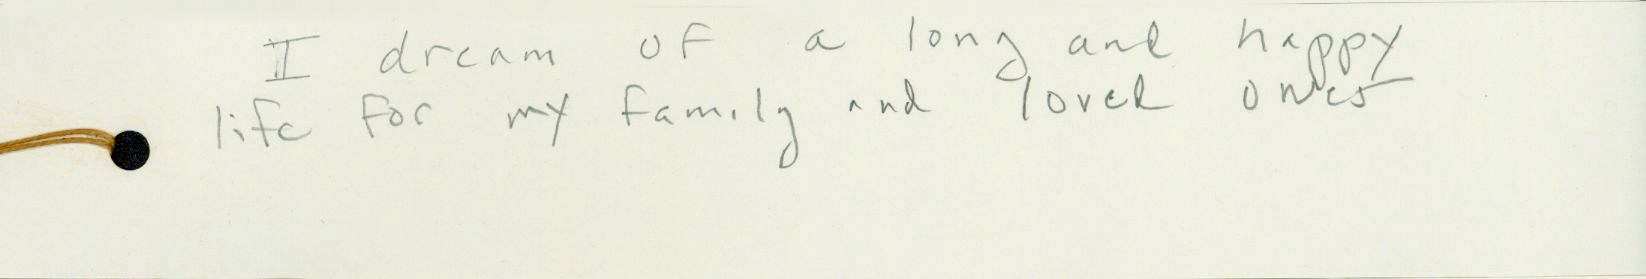 I dream of a long and happy
life for my family and loved ones